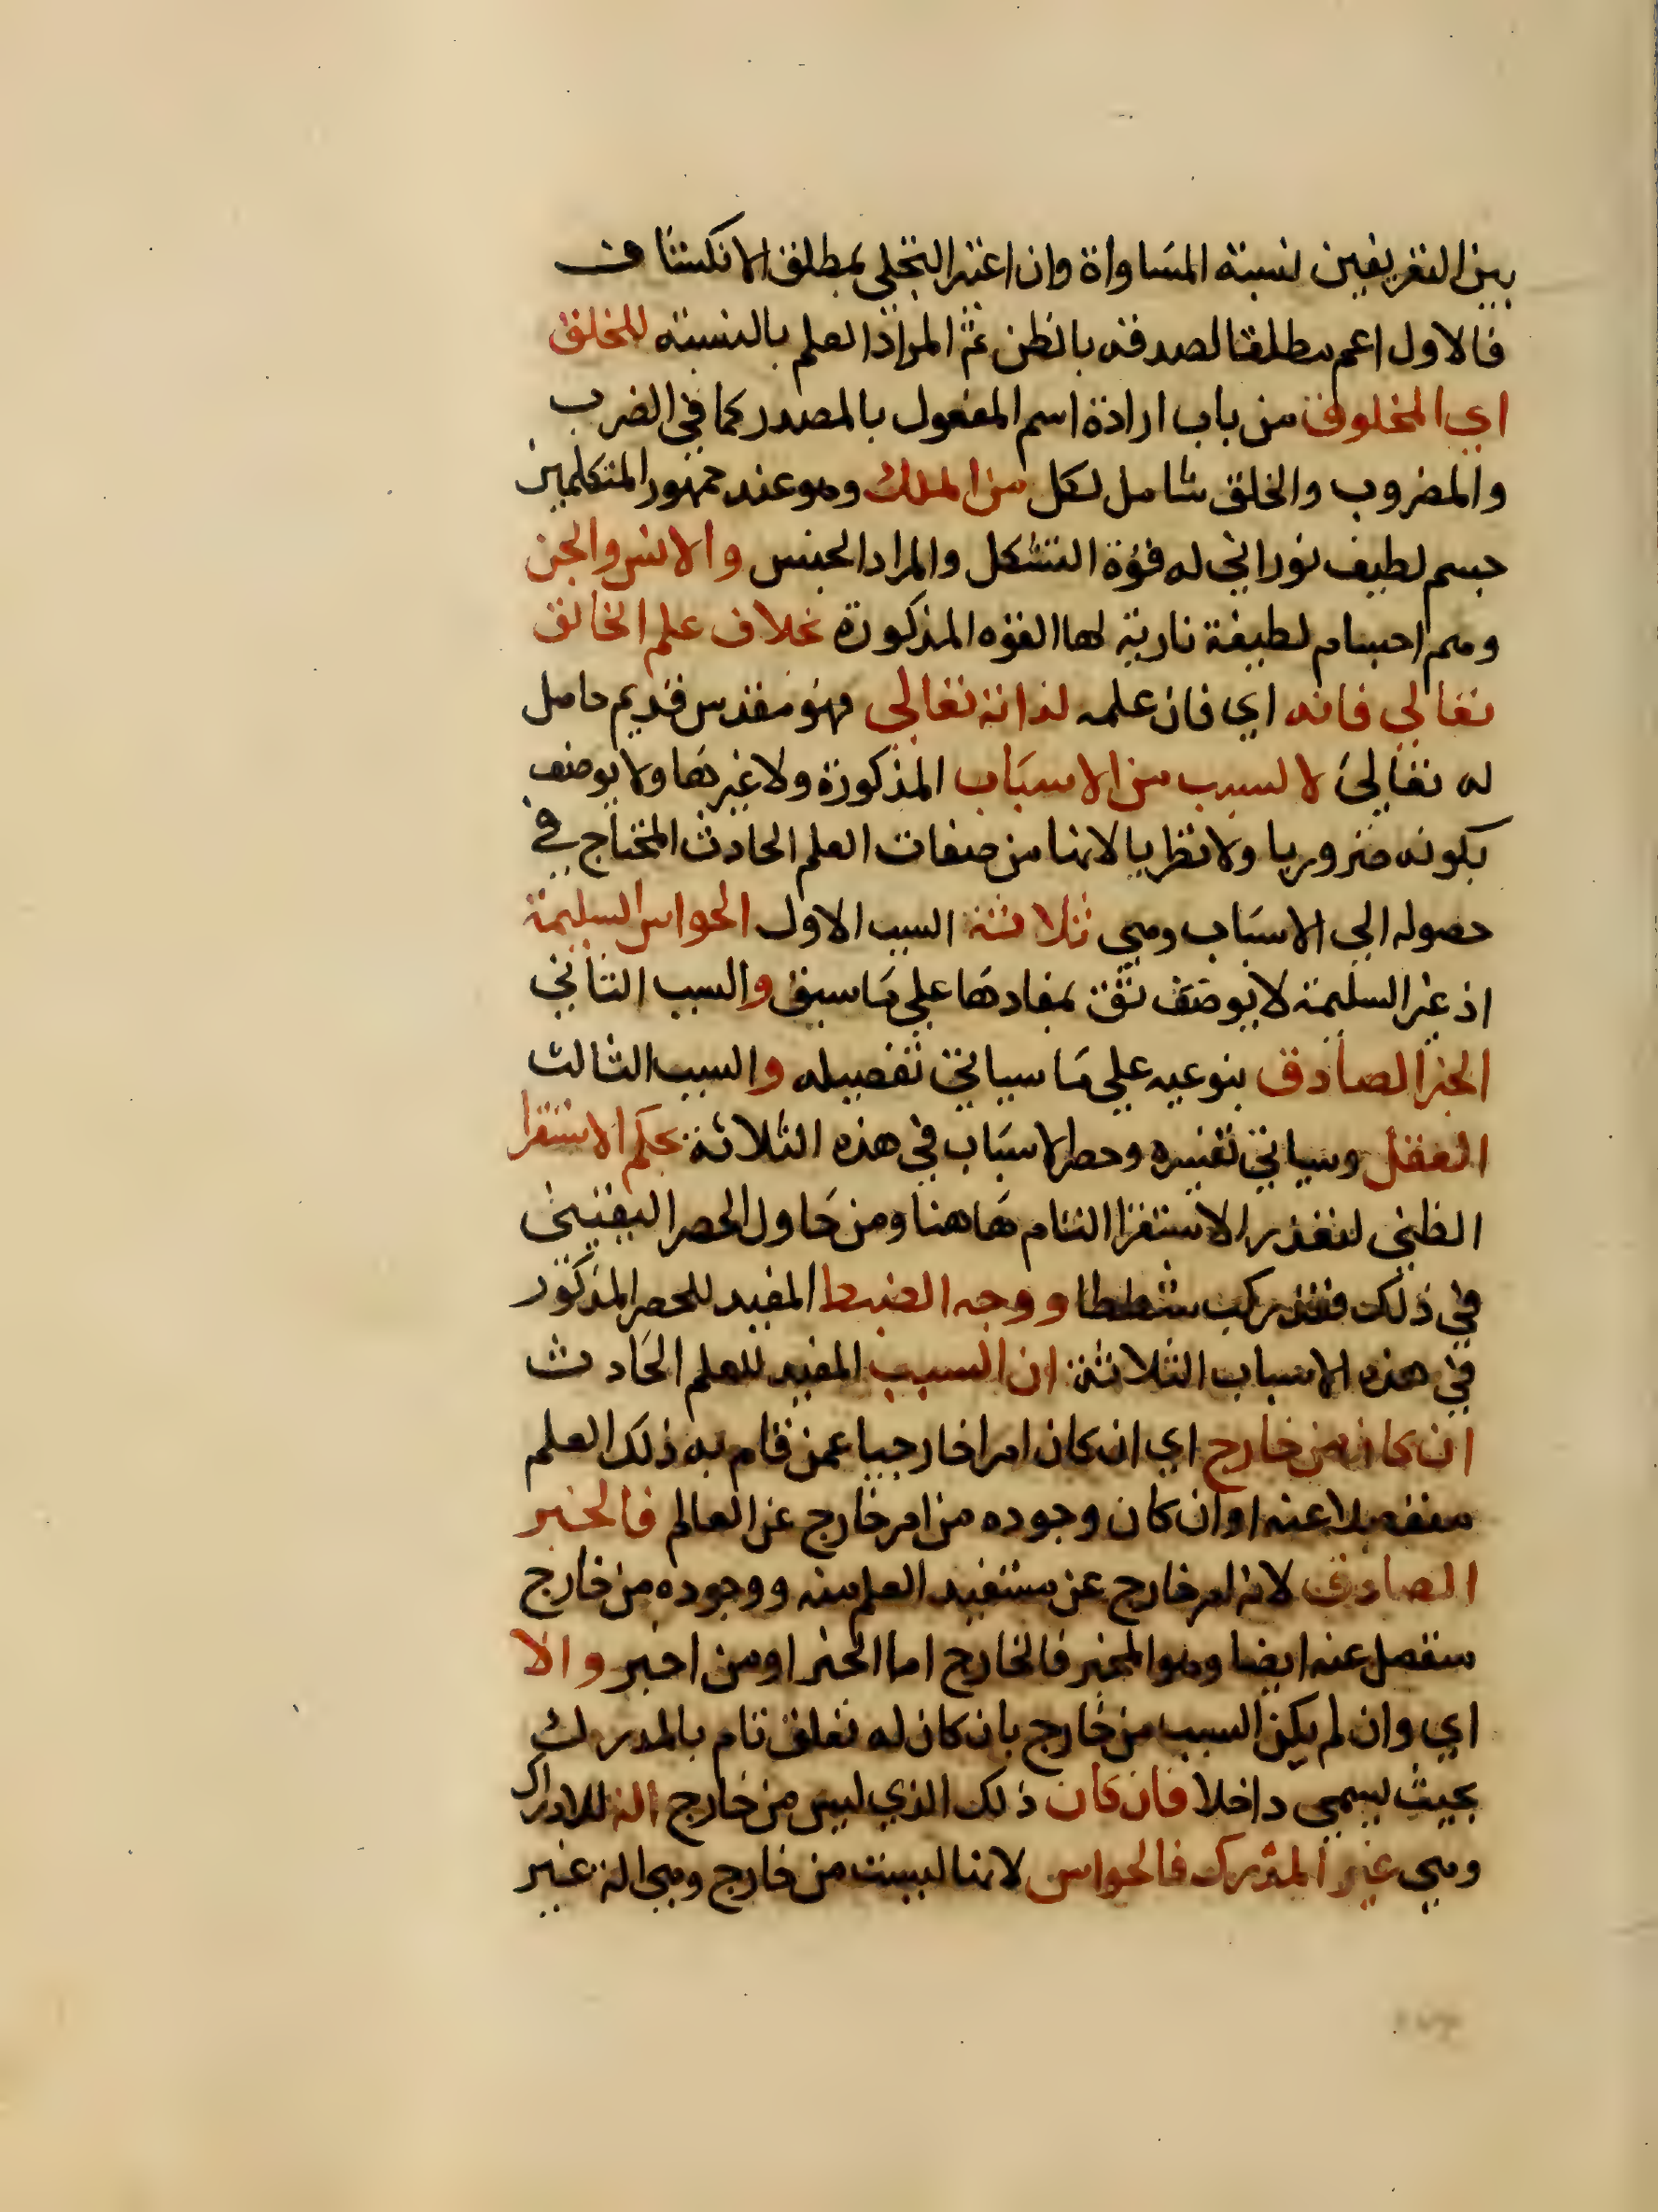 بين التعريفين نسبة المساواة وان اعتبر التجلي بمطلق الانكشاف
فالاول اعم مطلقا لصدقه بالظن ثم المراد العلم بالنسبة للخلق
اي المخلوق من باب ارادة اسم المفعول بالمصدر كما في الضرب
والمضروب والخلق شامل لكل من الملك وهو عند جمهور المتكلمين
جسم لطيف نوراني له قوة التشكل والمراد الجنس والانس والجن
وهم اجسام لطيفة نارية لها القوه المذكورة بخلاف علم الخالق
تعالي فانه اي فان علمه لذاته تعالي فهو مقدس قديم حاصل
له تعالي لا لسبب من الاسباب المذكورة ولا غيرها ولا يوصف
بكونه ضروريا ولا نظريا لانها من صفات العلم الحادث المحتاج في
حصوله الي الاسباب وهي ثلاثة السبب الاول الحواس السليمة
اذ غير السليمة لا يوصف ثقة بمفادها علي ما سبق والسبب الثاني
الخبر الصادق بنوعيه علي ما سياتي تفصيله والسبب الثالث
العقل وسياتي تفسيره وحصر الاسباب في هذه الثلاثة بحكم الاستقرا
الظني لتعذر الاستقرا التام هاهنا ومن حاول الحصر اليقيني
في ذلك فقد ركب شططا ووجه الضبط المفيد للحصر المذكور
في هذه الاسباب الثلاثة ان السبب المفيد للعلم الحادث
ان كان من خارج اي ان كان امرا خارجيا عمن قام به ذلك العلم
منفصلا عنه او ان كان وجوده من امر خارج عن العالم فالخبر
الصادق لانه امر خارج عن مستفيد العلم منه ووجوده من خارج
منفصل عنه ايضا وهو المخبر فالخارج اما الخبر او من اخبر والا
اي وان لم يكن السبب من خارج بان كان له تعلق تام بالمدرك
بحيث يسمي داخلا فان كان ذلك الذي ليس من خارج الة للادراك
وهي غير المدرك فالحواس لانها ليست من خارج وهي الة غير